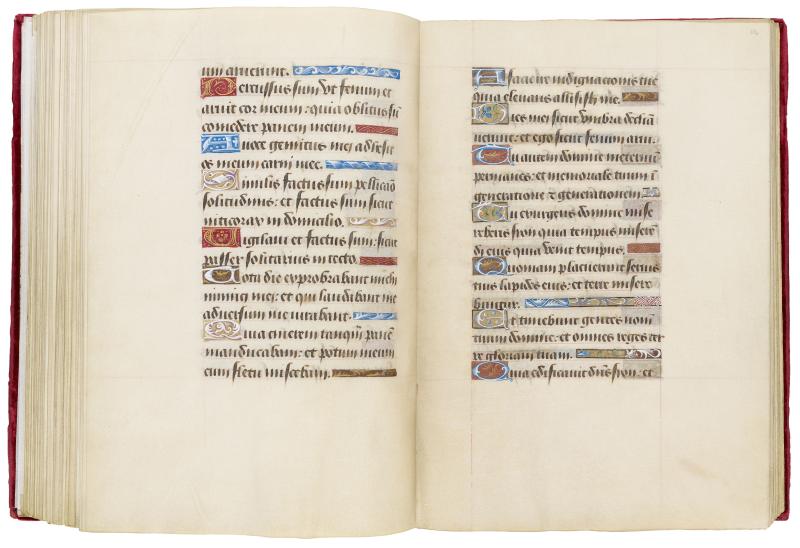 um aruerunt.
Percussus sum vt fenum et
aruit cor meum: quia oblitus sũ
comedere panem meum.
A voce gemitus mei adhesit
os meum carni mee.
Similis factus sum pellicano
solitudinis: et factus sum sicut
niticorax in domicilio.
Vigilaui et factus sum: sicut
passer solitarius in tecto.
Tota die exprobrabant michi
inimici mei: et qui laudabant me
aduersum me iurabant.
Quia cinerem tanq̃m panẽ
manducabam: et potum meum
cum fletu miscebam.
A facie ire indignacionis tue
quia eleuans allisisti me.
Dies mei sicut vmbra declina
uerunt: et ego sicut fenum arui.
Tu autem domine in eternũ
permanes: et memoriale tuum ĩ
generatione ⁊ generationem.
Tu exurgens domine mise
reberis sion quia tempus misere
di eius quia venit tempus.
Quoniam placuerunt seruis
tuis lapides eius: et terre misere
buntur.
Et timebunt gentes nom̃
tuum domine: et omnes reges ter
re gloriam tuam.
Quia edificauit dñs sion: et